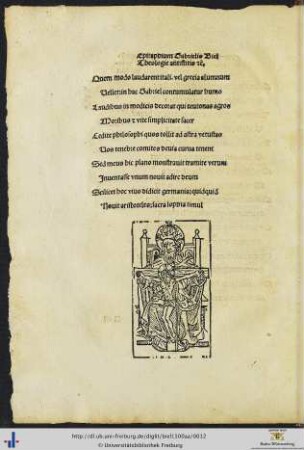 Epitaphium Gabrielis Biel
Theologie
Quem modo laudarent itali. vel grecia
hac Gabriel contumulatur humo
decorat qui teutonas agros
Moribus et vite simplicitate sacer
Cedite philosophi quos tollit ad astra vetustas
Vos tenebre comites devia curua tenent
Sed meus hic plano monstravit tramite verum
Inventasse unum novit adire deum
Scilicet hoc vius didicit germania quicquid
Novit aristoteles: sacra sophia simul
http://dl.ub.uni-freiburg.de/diglit/biel1500aa/0012
© Universitätsbibliothek Freiburg
Baden-Württemberg